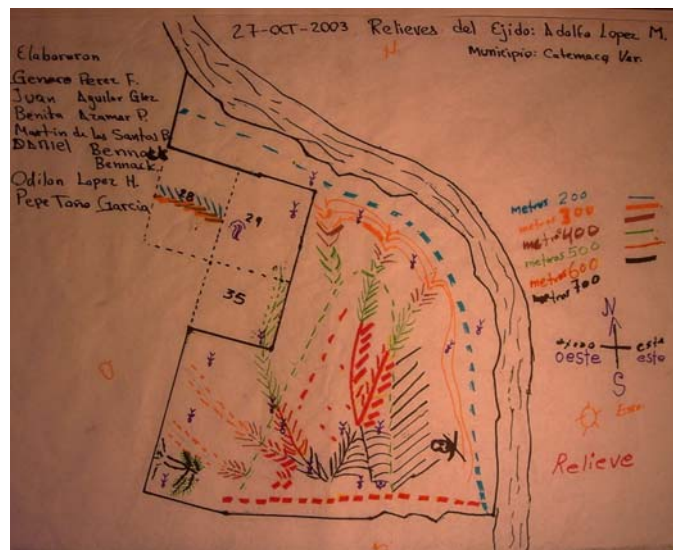 27-OCT-2003 Relieves del Ejido: Adolfo Lopez M.
Municipio: Catemaco Ver.
Elaboraron
Genaro Perez F.
Juan Aguilar Glez
Benita Azamar P.
Martin de los Santos B.
DANIEL Bennack
Bennack.
Odilon Lopez H.
Pepe Toño Garcia
N
28
29
35
metros 200
metros 300
metros 400
metros 500
metros 600
metros 700
N
oeste
este
este
S
Relieve